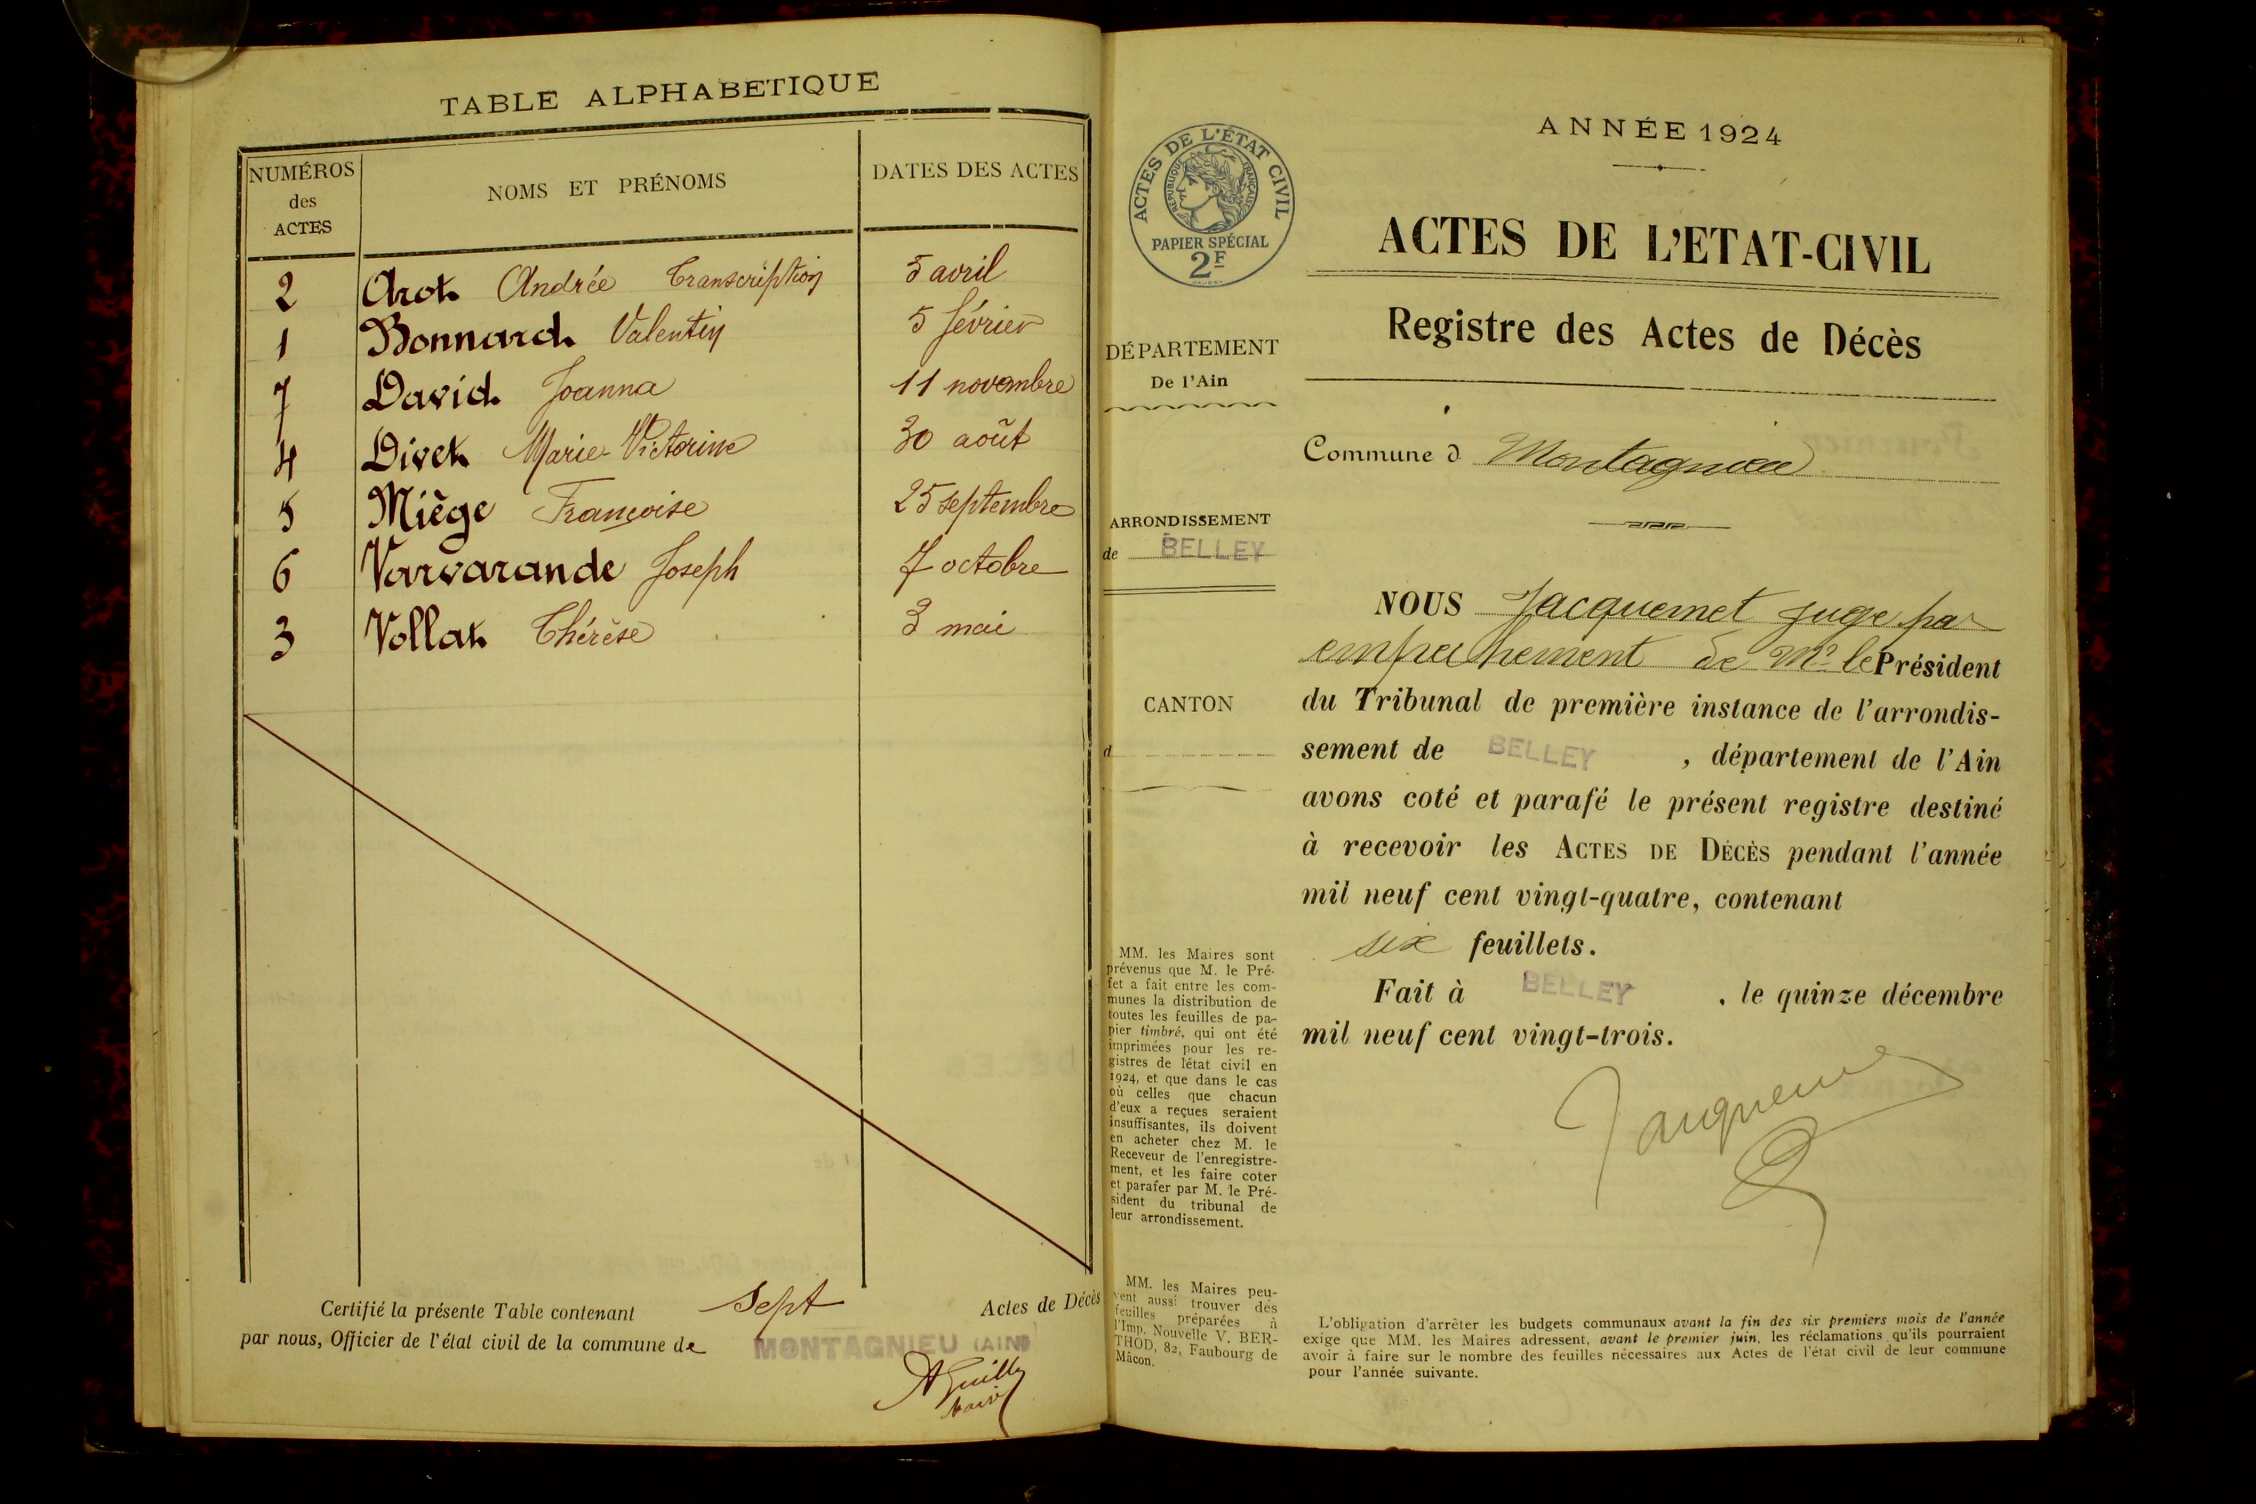 TABLE ALPHABETIQUE
NUMÉROS
des
ACTES
NOMS ET PRÉNOMS
DATES DES ACTES
2 Arot Andrée Transcription 5 avril
1 Bonnard Valentin 5 février
7 David Joanna 11 novembre
4 Divet Marie-Victorine 30 août
5 Miège Françoise 25 septembre
6 Varvarande Joseph 7 octobre
3 Vollat Thérèse 3 mai
Certifié la présente Table contenant sept Actes de Décès
par nous, Officier de l'état civil de la commune de MONTAGNIEU (AIN)
ACTES DE L'ÉTAT CIVIL
RÉPUBLIQUE FRANÇAISE
PAPIER SPÉCIAL
2F
DÉPARTEMENT
De l'Ain
ARRONDISSEMENT
de BELLEY
CANTON
d
MM. les Maires sont
prévenus que M. le Pré-
fet a fait entre les com-
munes la distribution de
toutes les feuilles de pa-
pier timbré, qui ont été
imprimées pour les re-
gistres de l'état civil en
1924, et que dans le cas
où celles que chacun
d'eux a reçues seraient
insuffisantes, ils doivent
en acheter chez M. le
Receveur de l'enregistre-
ment, et les faire coter
et parafer par M. le Pré-
sident du tribunal de
leur arrondissement.
MM. les Maires peu-
vent aussi trouver des
feuilles préparées à
l'Imp. Nouvelle V. BER-
THOD, 82, Faubourg de
Mâcon.
ANNÉE 1924
ACTES DE L'ETAT-CIVIL
Registre des Actes de Décès
Commune d Montagnieu
NOUS Jacquemet juge par
empechement de Mr le Président
du Tribunal de première instance de l'arrondis-
sement de BELLEY, département de l'Ain
avons coté et parafé le présent registre destiné
à recevoir les ACTES DE DÉCÈS pendant l'année
mil neuf cent vingt-quatre, contenant
six feuillets.
Fait à BELLEY, le quinze décembre
mil neuf cent vingt-trois.
L'obligation d'arrêter les budgets communaux avant la fin des six premiers mois de l'année
exige que MM. les Maires adressent, avant le premier juin, les réclamations qu'ils pourraient
avoir à faire sur le nombre des feuilles nécessaires aux Actes de l'état civil de leur commune
pour l'année suivante.